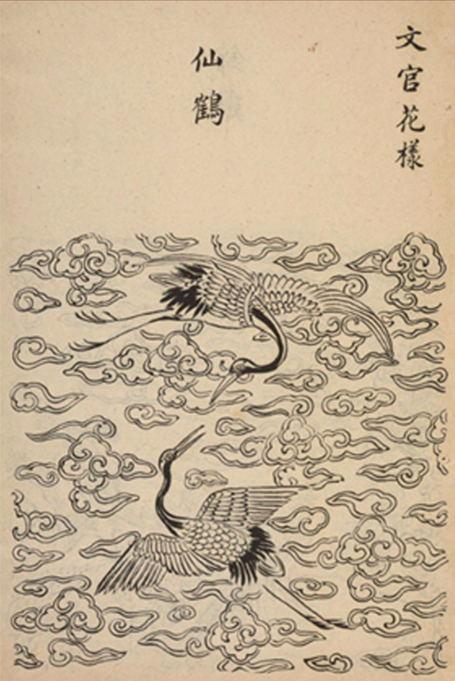 文官花樣
仙鶴